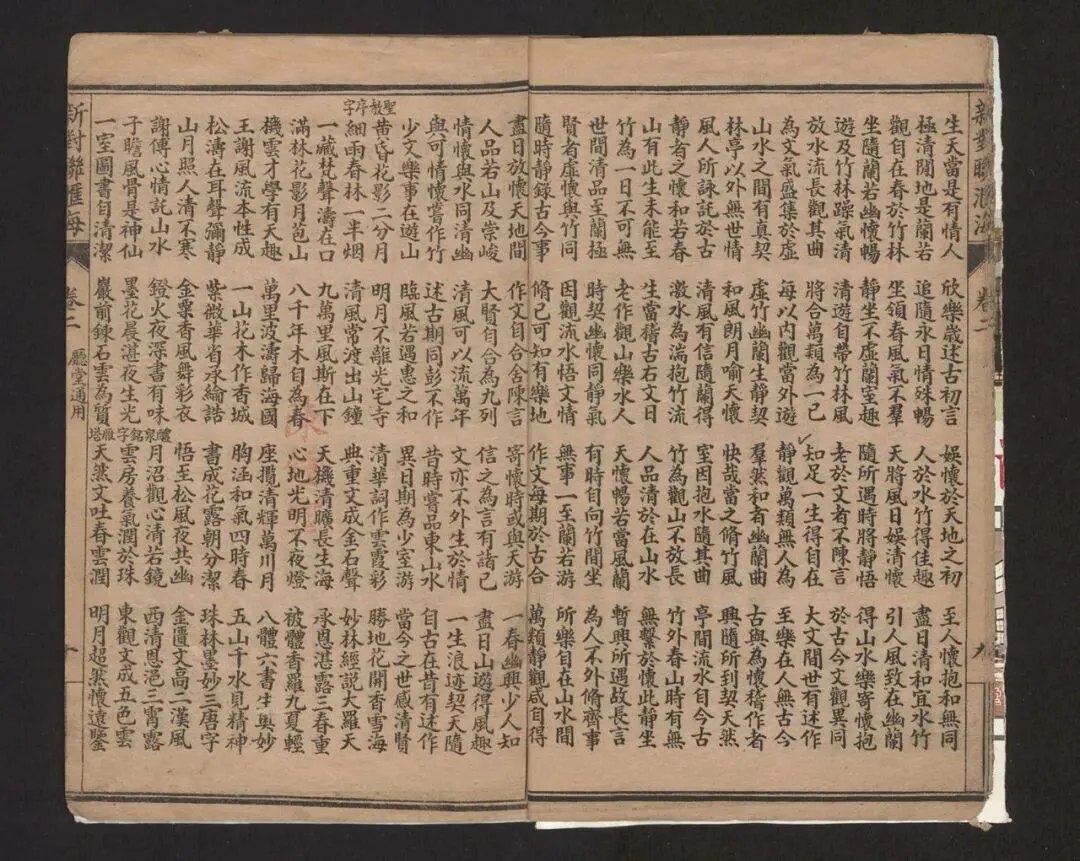 新對聯滙海
卷二
九
生天當是有情人
極清閒地是蘭若
觀自在春於竹林
坐隨蘭若幽懷暢
遊及竹林躁氣清
放水流長觀其曲
為文氣盛集於虛
山水之間有真契
林亭以外無世情
風人所詠託於古
靜者之懷和若春
山有此生未能至
竹為一日不可無
世間清品至蘭極
賢者虛懷與竹同
隨時靜錄古今事
欣樂歲述古初言
追隨永日情殊暢
坐領春風氣不羣
靜坐不虛蘭室趣
清遊自帶竹林風
將合萬類為一己
每以內觀當外遊
虛竹幽蘭生靜契
和風朗月喻天懷
清風有信隨蘭得
激水為湍抱竹流
生當稽古右文日
老作觀山樂水人
時契幽懷同靜氣
因觀流水悟文情
脩己可知有樂地
娛懷於天地之初
人於水竹得佳趣
天將風日娛清懷
隨所遇時將靜悟
老於文者不陳言
知足一生得自在
靜觀萬類無人為
羣然和者幽蘭曲
快哉當之脩竹風
室因抱水隨其曲
竹為觀山不放長
人品清於在山水
天懷暢若當風蘭
有時自向竹間坐
無事一至蘭若游
作文每期於古合
至人懷抱和無同
盡日清和宜水竹
引人風致在幽蘭
得山水樂寄懷抱
於古今文觀異同
大文閒世有述作
至樂在人無古今
古與為懷稽作者
興隨所到契天然
亭間流水自今古
竹外春山時有無
無繫於懷此靜坐
暫興所遇故長言
為人不外脩齊事
所樂自在山水間
萬類靜觀咸自得
盡日放懷天地間
人品若山及崇峻
情懷與水同清幽
與可情懷嘗作竹
少文樂事在遊山
聖教序字
黄昏花影二分月
細雨春林一半烟
一藏梵聲濤在口
滿林花影月笆山
機雲才學有天趣
王謝風流本性成
松濤在耳聲彌靜
山月照人清不寒
謝傅心情託山水
子瞻風骨是神仙
一室圖書自清潔
作文自合舍陳言
大賢自合為九列
清風可以流萬年
述古期同彭不作
臨風若遇惠之和
明月不離光宅寺
清風常渡出山鐘
九萬里風斯在下
八千年木自為春
萬里波濤歸海國
一山花木作香城
紫微華省承綸誥
金粟香風舞彩衣
鐙火夜深書有味
墨花晨湛夜生光
巖前鍊石雲為質
寄懷時或與天游
信之為言有諸己
文亦不外生於情
昔時嘗品東山水
異日期為少室游
清華詞作雲霞彩
典重文成金石聲
天機清曠長生海
心地光明不夜燈
座攬清輝萬川月
胸涵和氣四時春
書成花露朝分潔
悟至松風夜共幽
月沼觀心清若鏡
雲房養氣潤於珠
醴泉銘字雁塔
天然文吐春雲潤
一春幽興少人知
盡日山遊得風趣
一生浪迹契天隨
自古在昔有述作
當今之世感清賢
勝地花開香雪海
妙林經說大羅天
承恩湛露三春重
被體香羅九夏輕
八體六書生奧妙
五山千水見精神
珠林墨妙三唐字
金匱文高二漢風
西清恩浥三霄露
東觀文成五色雲
明月超然懷遠鑒
新對聯滙海
卷二
廳堂通用
十